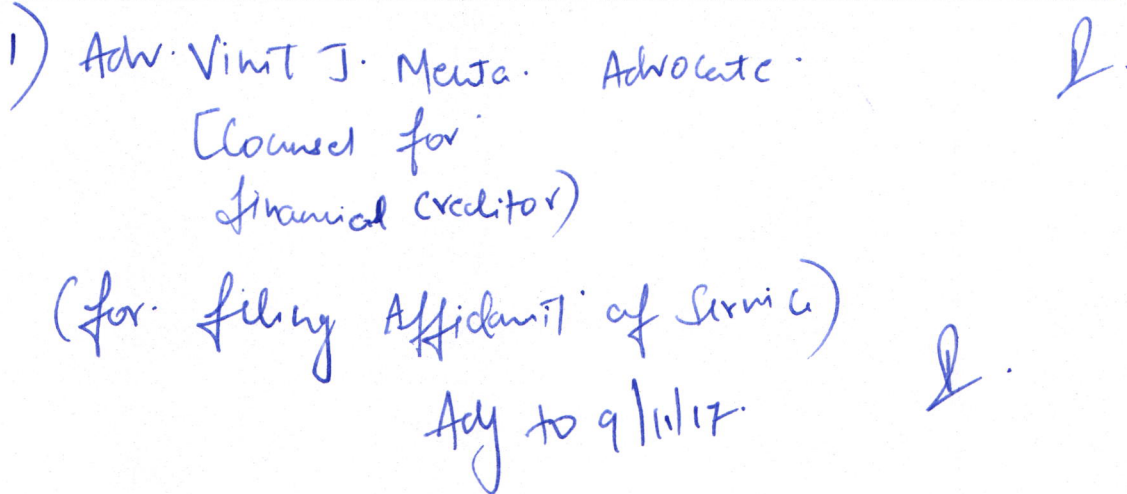 1) Adv. Vinit J. Mehta. Advocate.
[Counsel for
financial creditor)
(for filing Affidavit of Service)
Adj to 9/11/17.